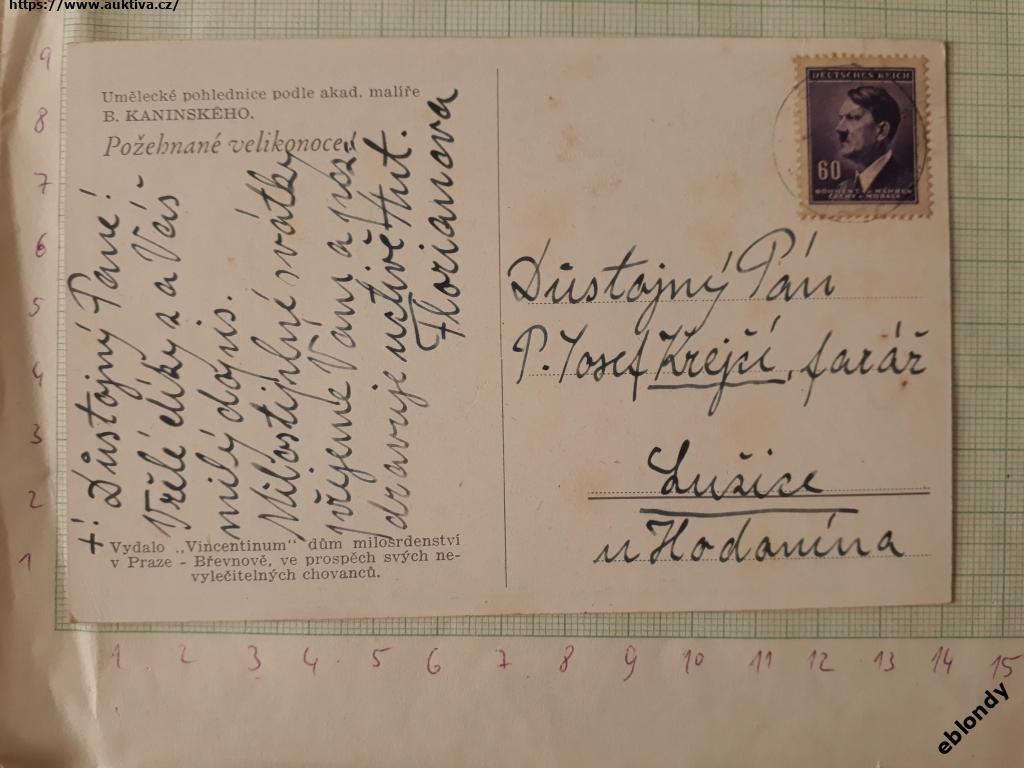 https://www.auktiva.cz/
Umělecké pohlednice podle akad. malíře
B. KANINSKÉHO.
Požehnané velikonoce!
+! Důstojný Pane!
Vřelé díky za Váš
milý dopis.
Milostiplné svátky
přejeme Vám a poz
dravuje uctivě Hut.
Florianova
Vydalo „Vincentinum“ dům milosrdenství
v Praze - Břevnově, ve prospěch svých ne-
vyléčitelných chovanců.
DEUTSCHES REICH
60
BÖHMEN U. MÄHREN
ČECHY A MORAVA
Důstojný Pán
P. Josef Krejčí, farář
Lužice
u Hodonína
9
8
7
6
5
4
3
2
1
1 2 3 4 5 6 7 8 9 10 11 12 13 14 15
eblondy